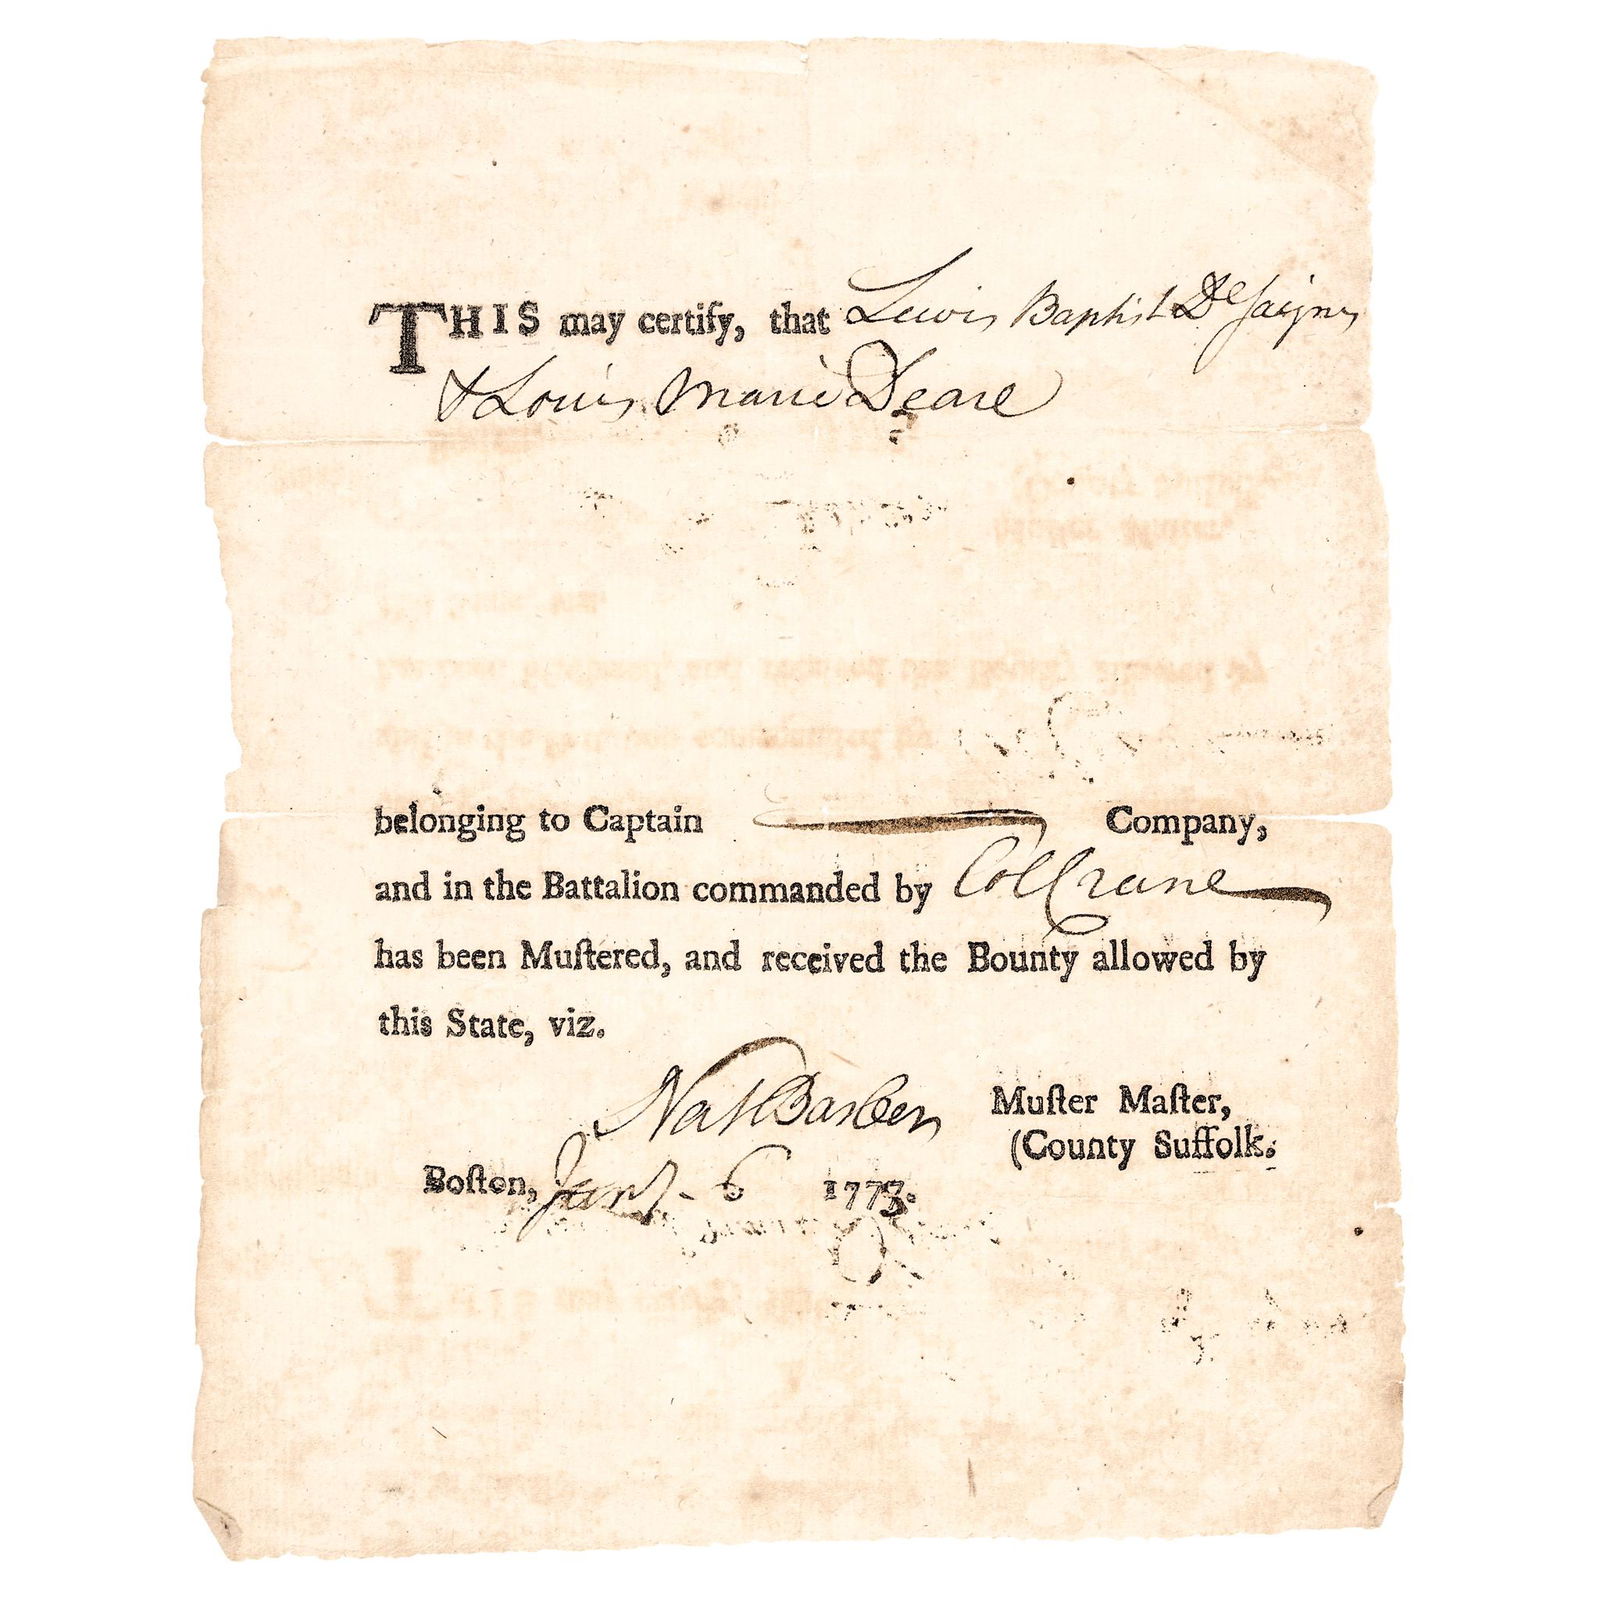 THIS may certify, that Lewis Baptist De
& Louis Marie Deare
belonging to Captain Company,
and in the Battalion commanded by Col Crane
has been Muſtered, and received the Bounty allowed by
this State, viz.
Nat Barber Muſter Maſter,
(County Suffolk.
Boſton, Jany. 6 1777.